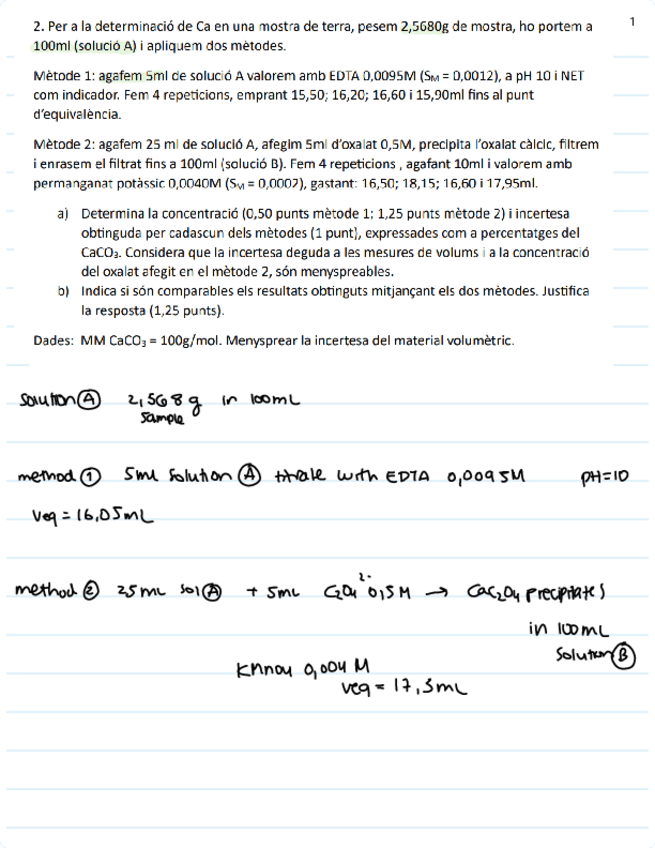 1
2. Per a la determinació de Ca en una mostra de terra, pesem 2,5680g de mostra, ho portem a
100ml (solució A) i apliquem dos mètodes.
Mètode 1: agafem 5ml de solució A valorem amb EDTA 0,0095M (SM = 0,0012), a pH 10 i NET
com indicador. Fem 4 repeticions, emprant 15,50; 16,20; 16,60 i 15,90ml fins al punt
d'equivalència.
Mètode 2: agafem 25 ml de solució A, afegim 5ml d'oxalat 0,5M, precipita l'oxalat càlcic, filtrem
i enrasem el filtrat fins a 100ml (solució B). Fem 4 repeticions , agafant 10ml i valorem amb
permanganat potàssic 0,0040M (SM = 0,0007), gastant: 16,50; 18,15; 16,60 i 17,95ml.
a) Determina la concentració (0,50 punts mètode 1; 1,25 punts mètode 2) i incertesa
obtinguda per cadascun dels mètodes (1 punt), expressades com a percentatges del
CaCO3. Considera que la incertesa deguda a les mesures de volums i a la concentració
del oxalat afegit en el mètode 2, són menyspreables.
b) Indica si són comparables els resultats obtinguts mitjançant els dos mètodes. Justifica
la resposta (1,25 punts).
Dades: MM CaCO3 = 100g/mol. Menysprear la incertesa del material volumètric.
solution A 2,568 g in 100mL
sample
method 1 5mL solution A titrate with EDTA 0,0095M pH=10
Veq = 16,05mL
method 2 25mL sol A + 5mL C2O4 2- 0,5M → CaC2O4 precipitates
in 100mL
solution B
KMnO4 0,004 M
Veq = 17,3mL